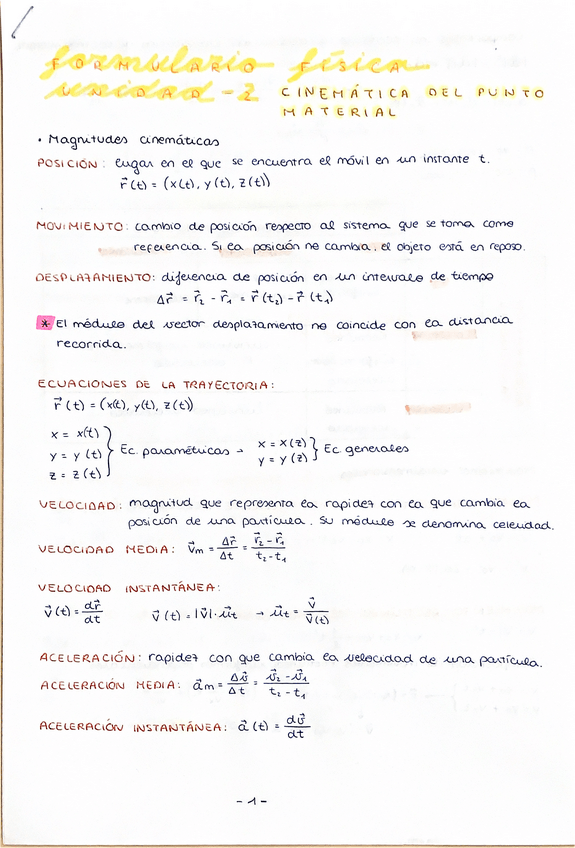 formulario física
FORMULARIO FÍSICA
unidad-2
UNIDAD-2 CINEMÁTICA DEL PUNTO
MATERIAL
• Magnitudes cinemáticas
POSICIÓN: lugar en el que se encuentra el móvil en un instante t.
r⃗(t) = (x(t), y(t), z(t))
MOVIMIENTO: cambio de posición respecto al sistema que se toma como
referencia. Si la posición no cambia, el objeto está en reposo.
DESPLAZAMIENTO: diferencia de posición en un intervalo de tiempo
Δr⃗ = r⃗₂ - r⃗₁ = r⃗(t₂) - r⃗(t₁)
* El módulo del vector desplazamiento no coincide con la distancia
recorrida.
ECUACIONES DE LA TRAYECTORIA:
r⃗(t) = (x(t), y(t), z(t))
x = x(t)
y = y(t) } Ec. paramétricas → x = x(z) y = y(z) } Ec generales
z = z(t)
VELOCIDAD: magnitud que representa la rapidez con la que cambia la
posición de una partícula. Su módulo se denomina celeridad.
VELOCIDAD MEDIA: v⃗m = Δr⃗/Δt = (r⃗₂ - r⃗₁)/(t₂ - t₁)
VELOCIDAD INSTANTÁNEA:
v⃗(t) = dr⃗/dt v⃗(t) = |v⃗|·u⃗t → u⃗t = v⃗/v(t)
ACELERACIÓN: rapidez con que cambia la velocidad de una partícula.
ACELERACIÓN MEDIA: a⃗m = Δv⃗/Δt = (v⃗₂ - v⃗₁)/(t₂ - t₁)
ACELERACIÓN INSTANTÁNEA: a⃗(t) = dv⃗/dt
-1-